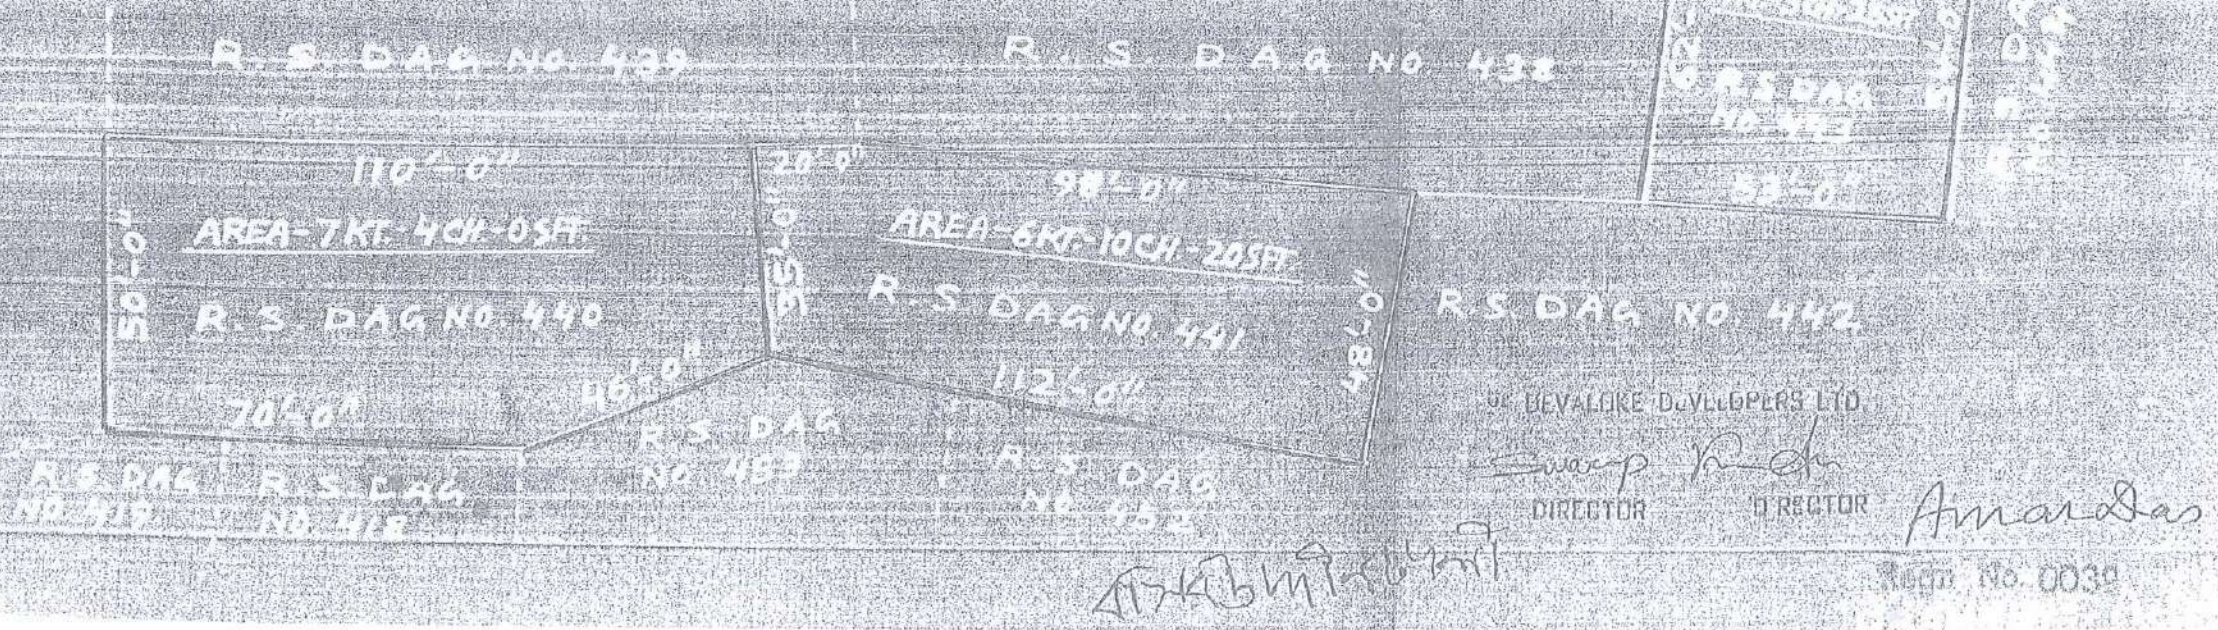 R. S. DAG NO. 439
R. S. DAG NO. 438
R.S. DAG
NO. 443
53'-0"
110'-0"
20'-0"
98'-0"
50'-0"
AREA-7KT.-4CH.-0SFT.
35'-0"
AREA-6KT-10CH.-20SFT.
48'-0"
R. S. DAG NO. 440
R. S. DAG NO. 441
R.S. DAG NO. 442
70'-0"
46'-0"
112'-0"
R.S. DAG
NO. 419
R. S. DAG
NO. 418
R. S. DAG
NO. 453
R. S. DAG
NO. 452
DEVALOKE DEVELOPERS LTD.
DIRECTOR
DIRECTOR
Amar Das